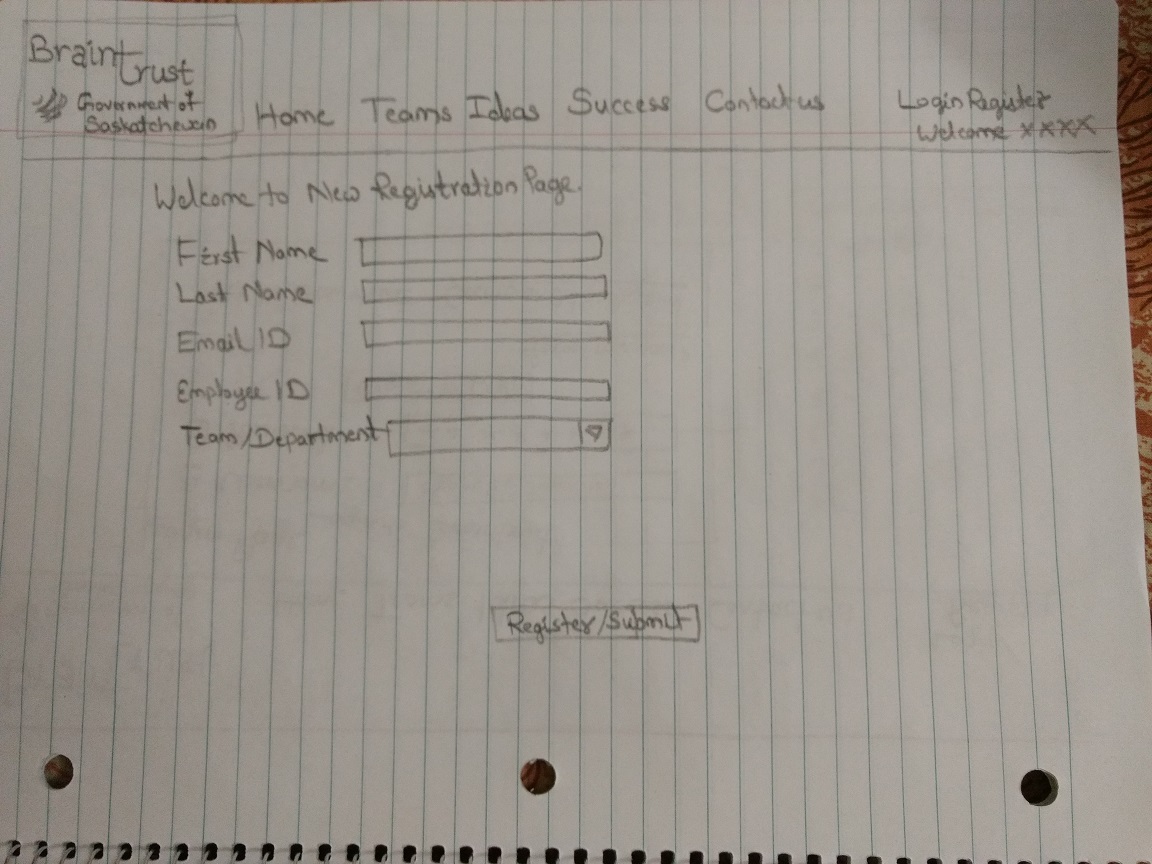 Brain
Trust
Government of
Saskatchewan
Home Teams Ideas Success Contact us
Login Register
Welcome xxxx
Welcome to New Registration Page.
First Name
Last Name
Email ID
Employee ID
Team/Department
Register/Submit